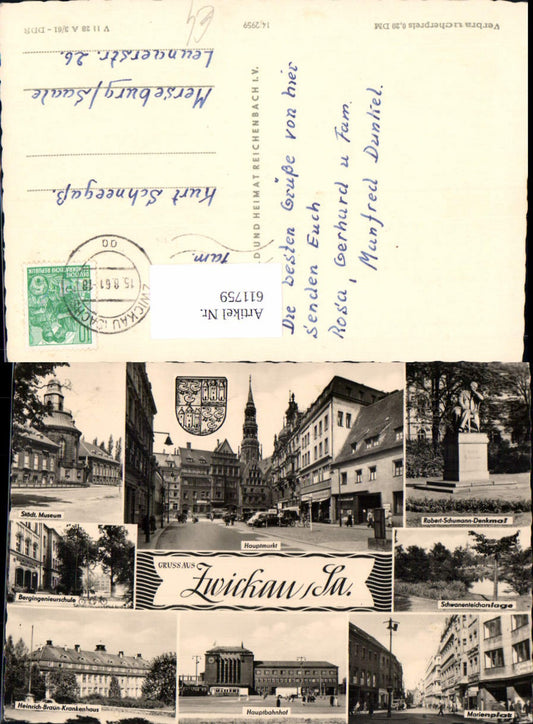 V 11 28 A 3/61 - DDR
14/2959
Verbraucherpreis 0,20 DM
Die besten Grüße von hier
senden Euch
Rosa, Gerhard u Fam.
Manfred Dunkel.
D UND HEIMAT REICHENBACH I. V.
Fam.
Kurt Schneegaß.
Merseburg/Saale
Leunaerstr. 26.
ZWICKAU (SACHS
15.8.61-18
Artikel Nr.
611759
Städt. Museum
Hauptmarkt
Robert-Schumann-Denkmal
Bergingenieurschule
GRUSS AUS
Zwickau/Sa.
Schwanenteichanlage
Heinrich-Braun-Krankenhaus
Hauptbahnhof
Marienplatz